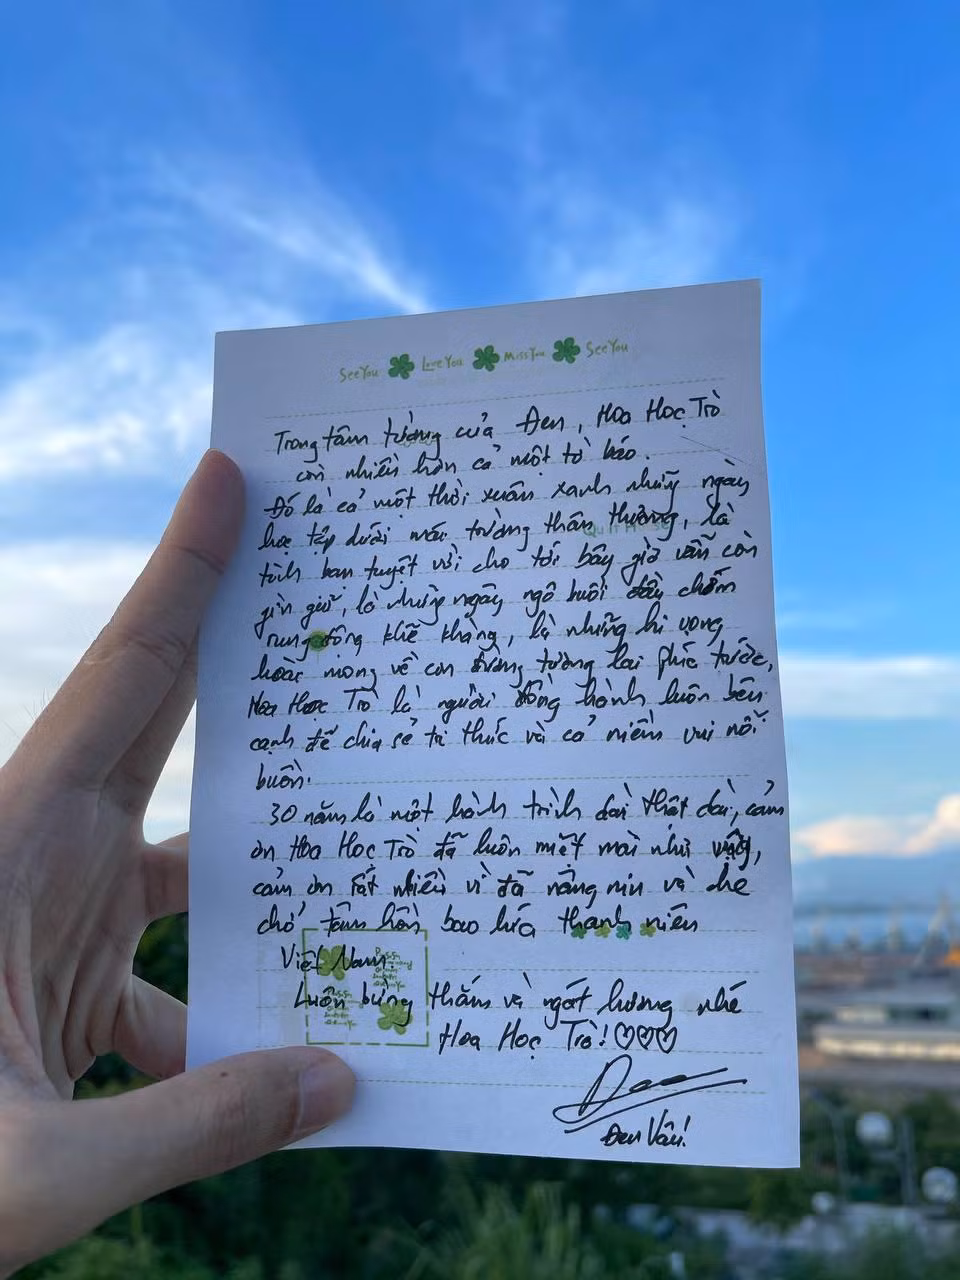 See You Love You Miss You See You
Trong tâm tưởng của Đen, Hoa Học Trò
còn nhiều hơn cả một tờ báo.
Đó là cả một thời xuân xanh những ngày
học tập dưới mái trường thân thương, là
tình bạn tuyệt vời cho tới bây giờ vẫn còn
gìn giữ, là những ngày ngô buổi đầu chớm
rung động khẽ khàng, là những hi vọng
hoài mong về con đường tương lai phía trước,
Hoa Học Trò là người đồng hành luôn bên
cạnh để chia sẻ tri thức và cả niềm vui nỗi
buồn.
30 năm là một hành trình dài thật dài, cảm
ơn Hoa Học Trò đã luôn miệt mài như vậy,
cảm ơn rất nhiều vì đã nâng niu và che
chở tâm hồn bao lứa thanh niên
Việt Nam
Luôn bừng thắm và ngát hương nhé
Hoa Học Trò! ♡♡♡
Đen Vâu!